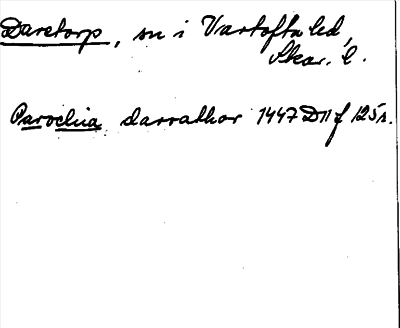 Daretorp, sn i Vartofta hd,
Skar. l.
Parochia darrathor 1447 DII f 125 r.